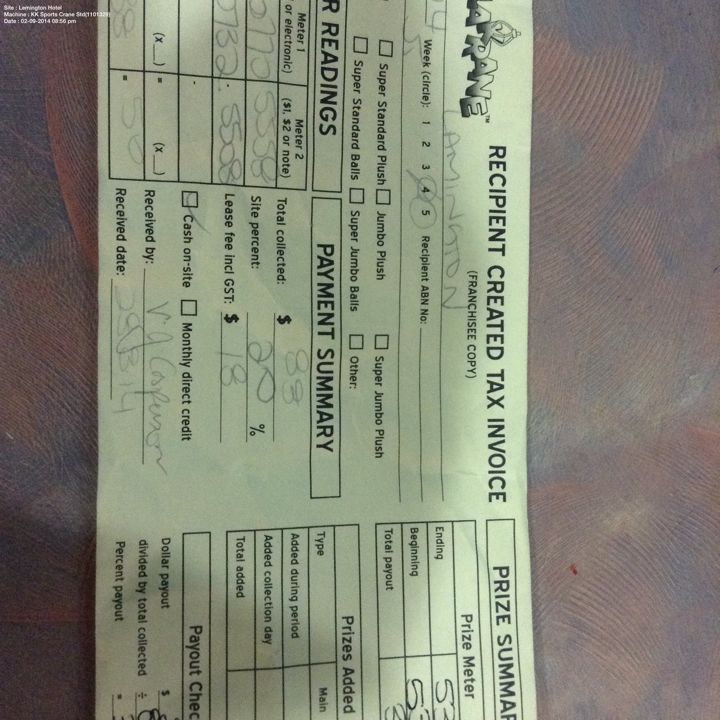 Site : Lemington Hotel
Machine : KK Sports Crane Std(1101339)
Date : 02-09-2014 08:56 pm
RECIPIENT CREATED TAX INVOICE
(FRANCHISEE COPY)
Week (circle): 1 2 3 4 5 Recipient ABN No:
Super Standard Plush Jumbo Plush Super Jumbo Plush
Super Standard Balls Super Jumbo Balls Other:
READINGS
Meter 1
or electronic)
Meter 2
($1, $2 or note)
5558
5508
(x__) = (x__)
= 50
PAYMENT SUMMARY
Total collected: $ 88
Site percent: 20 %
Lease fee incl GST: $ 18
Cash on-site Monthly direct credit
Received by:
Received date:
PRIZE SUMMAR
Prize Meter
Ending 53
Beginning
Total payout
Prizes Added
Type Main
Added during period
Added collection day
Total added
Payout Chec
Dollar payout $
divided by total collected ÷
Percent payout =